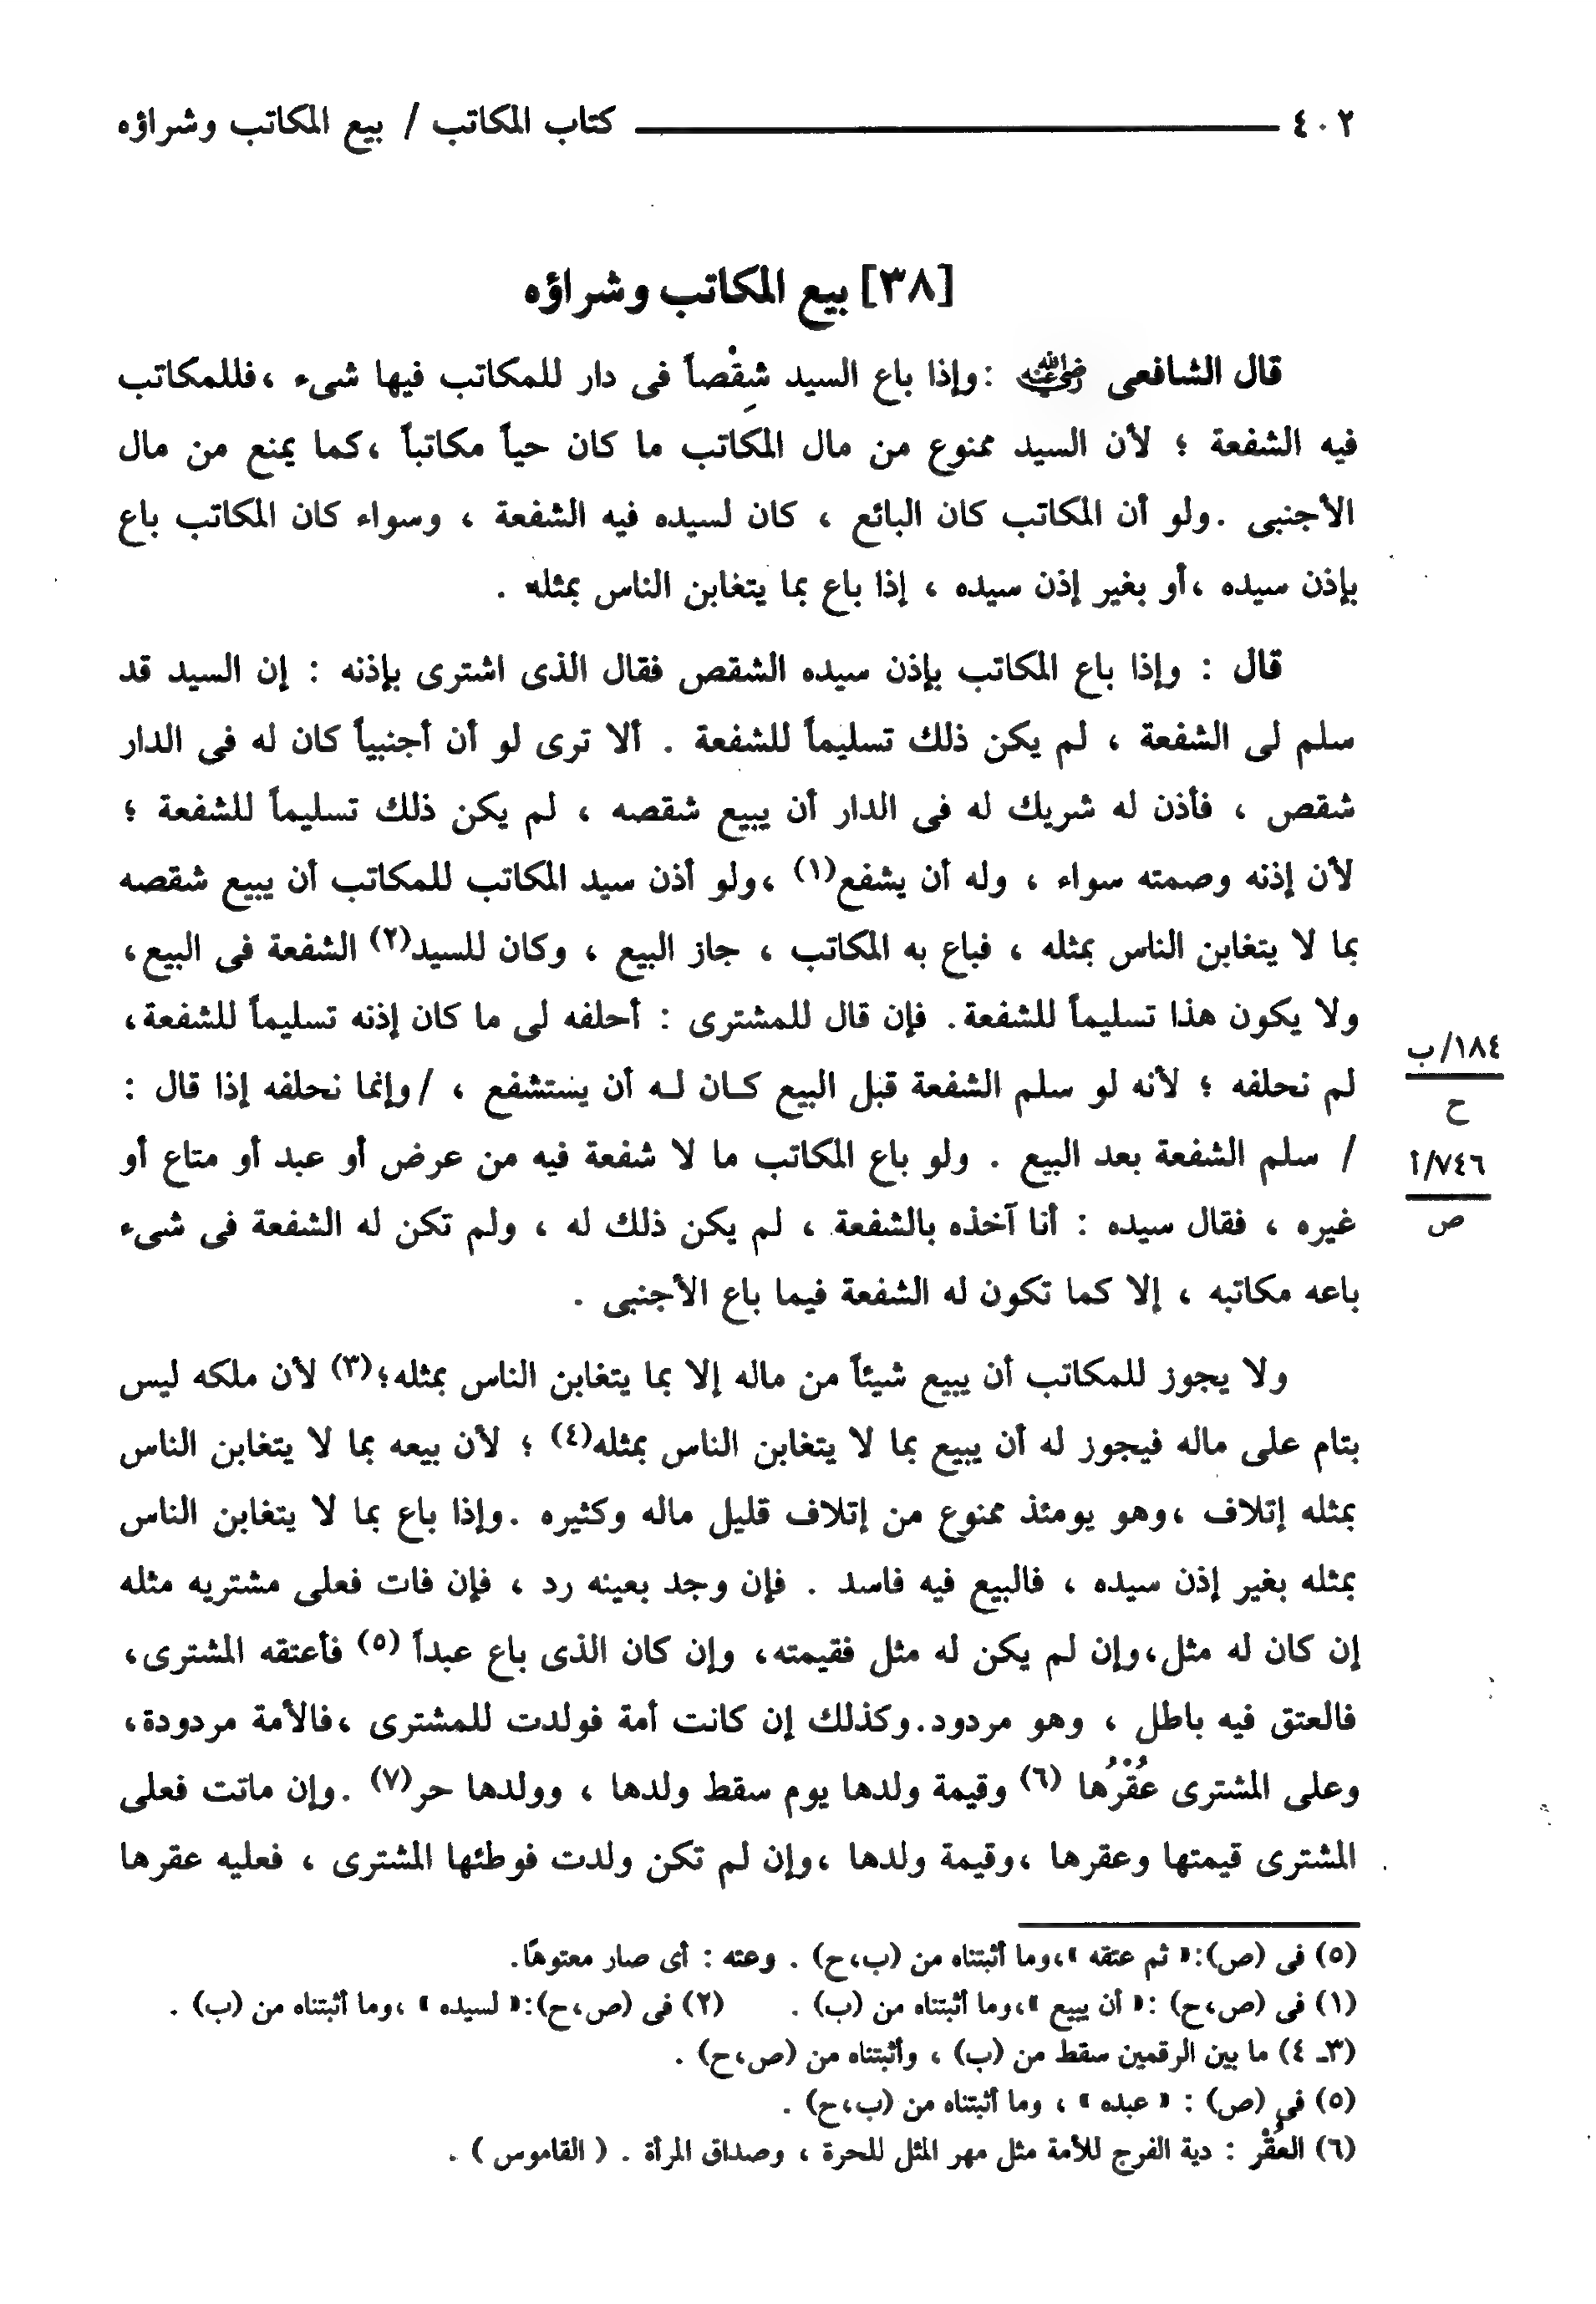 ٤٠٢ كتاب المكاتب / بيع المكاتب وشراؤه
[٣٨] بيع المكاتب وشراؤه
قال الشافعى رضي الله عنه :وإذا باع السيد شِقْصاً فى دار للمكاتب فيها شىء ،فللمكاتب
فيه الشفعة ؛ لأن السيد ممنوع من مال المكاتب ما كان حياً مكاتباً ،كما يمنع من مال
الأجنبى .ولو أن المكاتب كان البائع ، كان لسيده فيه الشفعة ، وسواء كان المكاتب باع
بإذن سيده ،أو بغير إذن سيده ، إذا باع بما يتغابن الناس بمثله .
قال : وإذا باع المكاتب بإذن سيده الشقص فقال الذى اشترى بإذنه : إن السيد قد
سلم لى الشفعة ، لم يكن ذلك تسليماً للشفعة . ألا ترى لو أن أجنبياً كان له فى الدار
شقص ، فأذن له شريك له فى الدار أن يبيع شقصه ، لم يكن ذلك تسليماً للشفعة ؛
لأن إذنه وصمته سواء ، وله أن يشفع(١) ،ولو أذن سيد المكاتب للمكاتب أن يبيع شقصه
بما لا يتغابن الناس بمثله ، فباع به المكاتب ، جاز البيع ، وكان للسيد(٢) الشفعة فى البيع،
ولا يكون هذا تسليماً للشفعة. فإن قال للمشترى : أحلفه لى ما كان إذنه تسليماً للشفعة،
١٨٤/ب
لم نحلفه ؛ لأنه لو سلم الشفعة قبل البيع كـان لـه أن يستشفع ، /وإنما نحلفه إذا قال :
ح
/ سلم الشفعة بعد البيع . ولو باع المكاتب ما لا شفعة فيه من عرض أو عبد أو متاع أو
٧٤٦/أ
غيره ، فقال سيده : أنا آخذه بالشفعة ، لم يكن ذلك له ، ولم تكن له الشفعة فى شىء
ص
باعه مكاتبه ، إلا كما تكون له الشفعة فيما باع الأجنبى .
ولا يجوز للمكاتب أن يبيع شيئاً من ماله إلا بما يتغابن الناس بمثله؛(٣) لأن ملكه ليس
بتام على ماله فيجوز له أن يبيع بما لا يتغابن الناس بمثله(٤) ؛ لأن بيعه بما لا يتغابن الناس
بمثله إتلاف ،وهو يومئذ ممنوع من إتلاف قليل ماله وكثيره .وإذا باع بما لا يتغابن الناس
بمثله بغير إذن سيده ، فالبيع فيه فاسد . فإن وجد بعينه رد ، فإن فات فعلى مشتريه مثله
إن كان له مثل،وإن لم يكن له مثل فقيمته، وإن كان الذى باع عبداً (٥) فأعتقه المشترى،
فالعتق فيه باطل ، وهو مردود.وكذلك إن كانت أمة فولدت للمشترى ،فالأمة مردودة،
وعلى المشترى عُقْرُها (٦) وقيمة ولدها يوم سقط ولدها ، وولدها حر(٧) .وإن ماتت فعلى
المشترى قيمتها وعقرها ،وقيمة ولدها ،وإن لم تكن ولدت فوطئها المشترى ، فعليه عقرها
(٥) فى (ص):« ثم عتقه »،وما أثبتناه من (ب،ح) . وعته : أى صار معتوهًا.
(١) فى (ص،ح) :« أن يبيع »،وما أثبتناه من (ب) . (٢) فى (ص،ح):« لسيده » ،وما أثبتناه من (ب) .
(٣ـ ٤) ما بين الرقمين سقط من (ب) ، وأثبتناه من (ص،ح) .
(٥) فى (ص) : « عبده » ، وما أثبتناه من (ب،ح) .
(٦) العُقْر : دية الفرج للأمة مثل مهر المثل للحرة ، وصداق المرأة . ( القاموس ) .